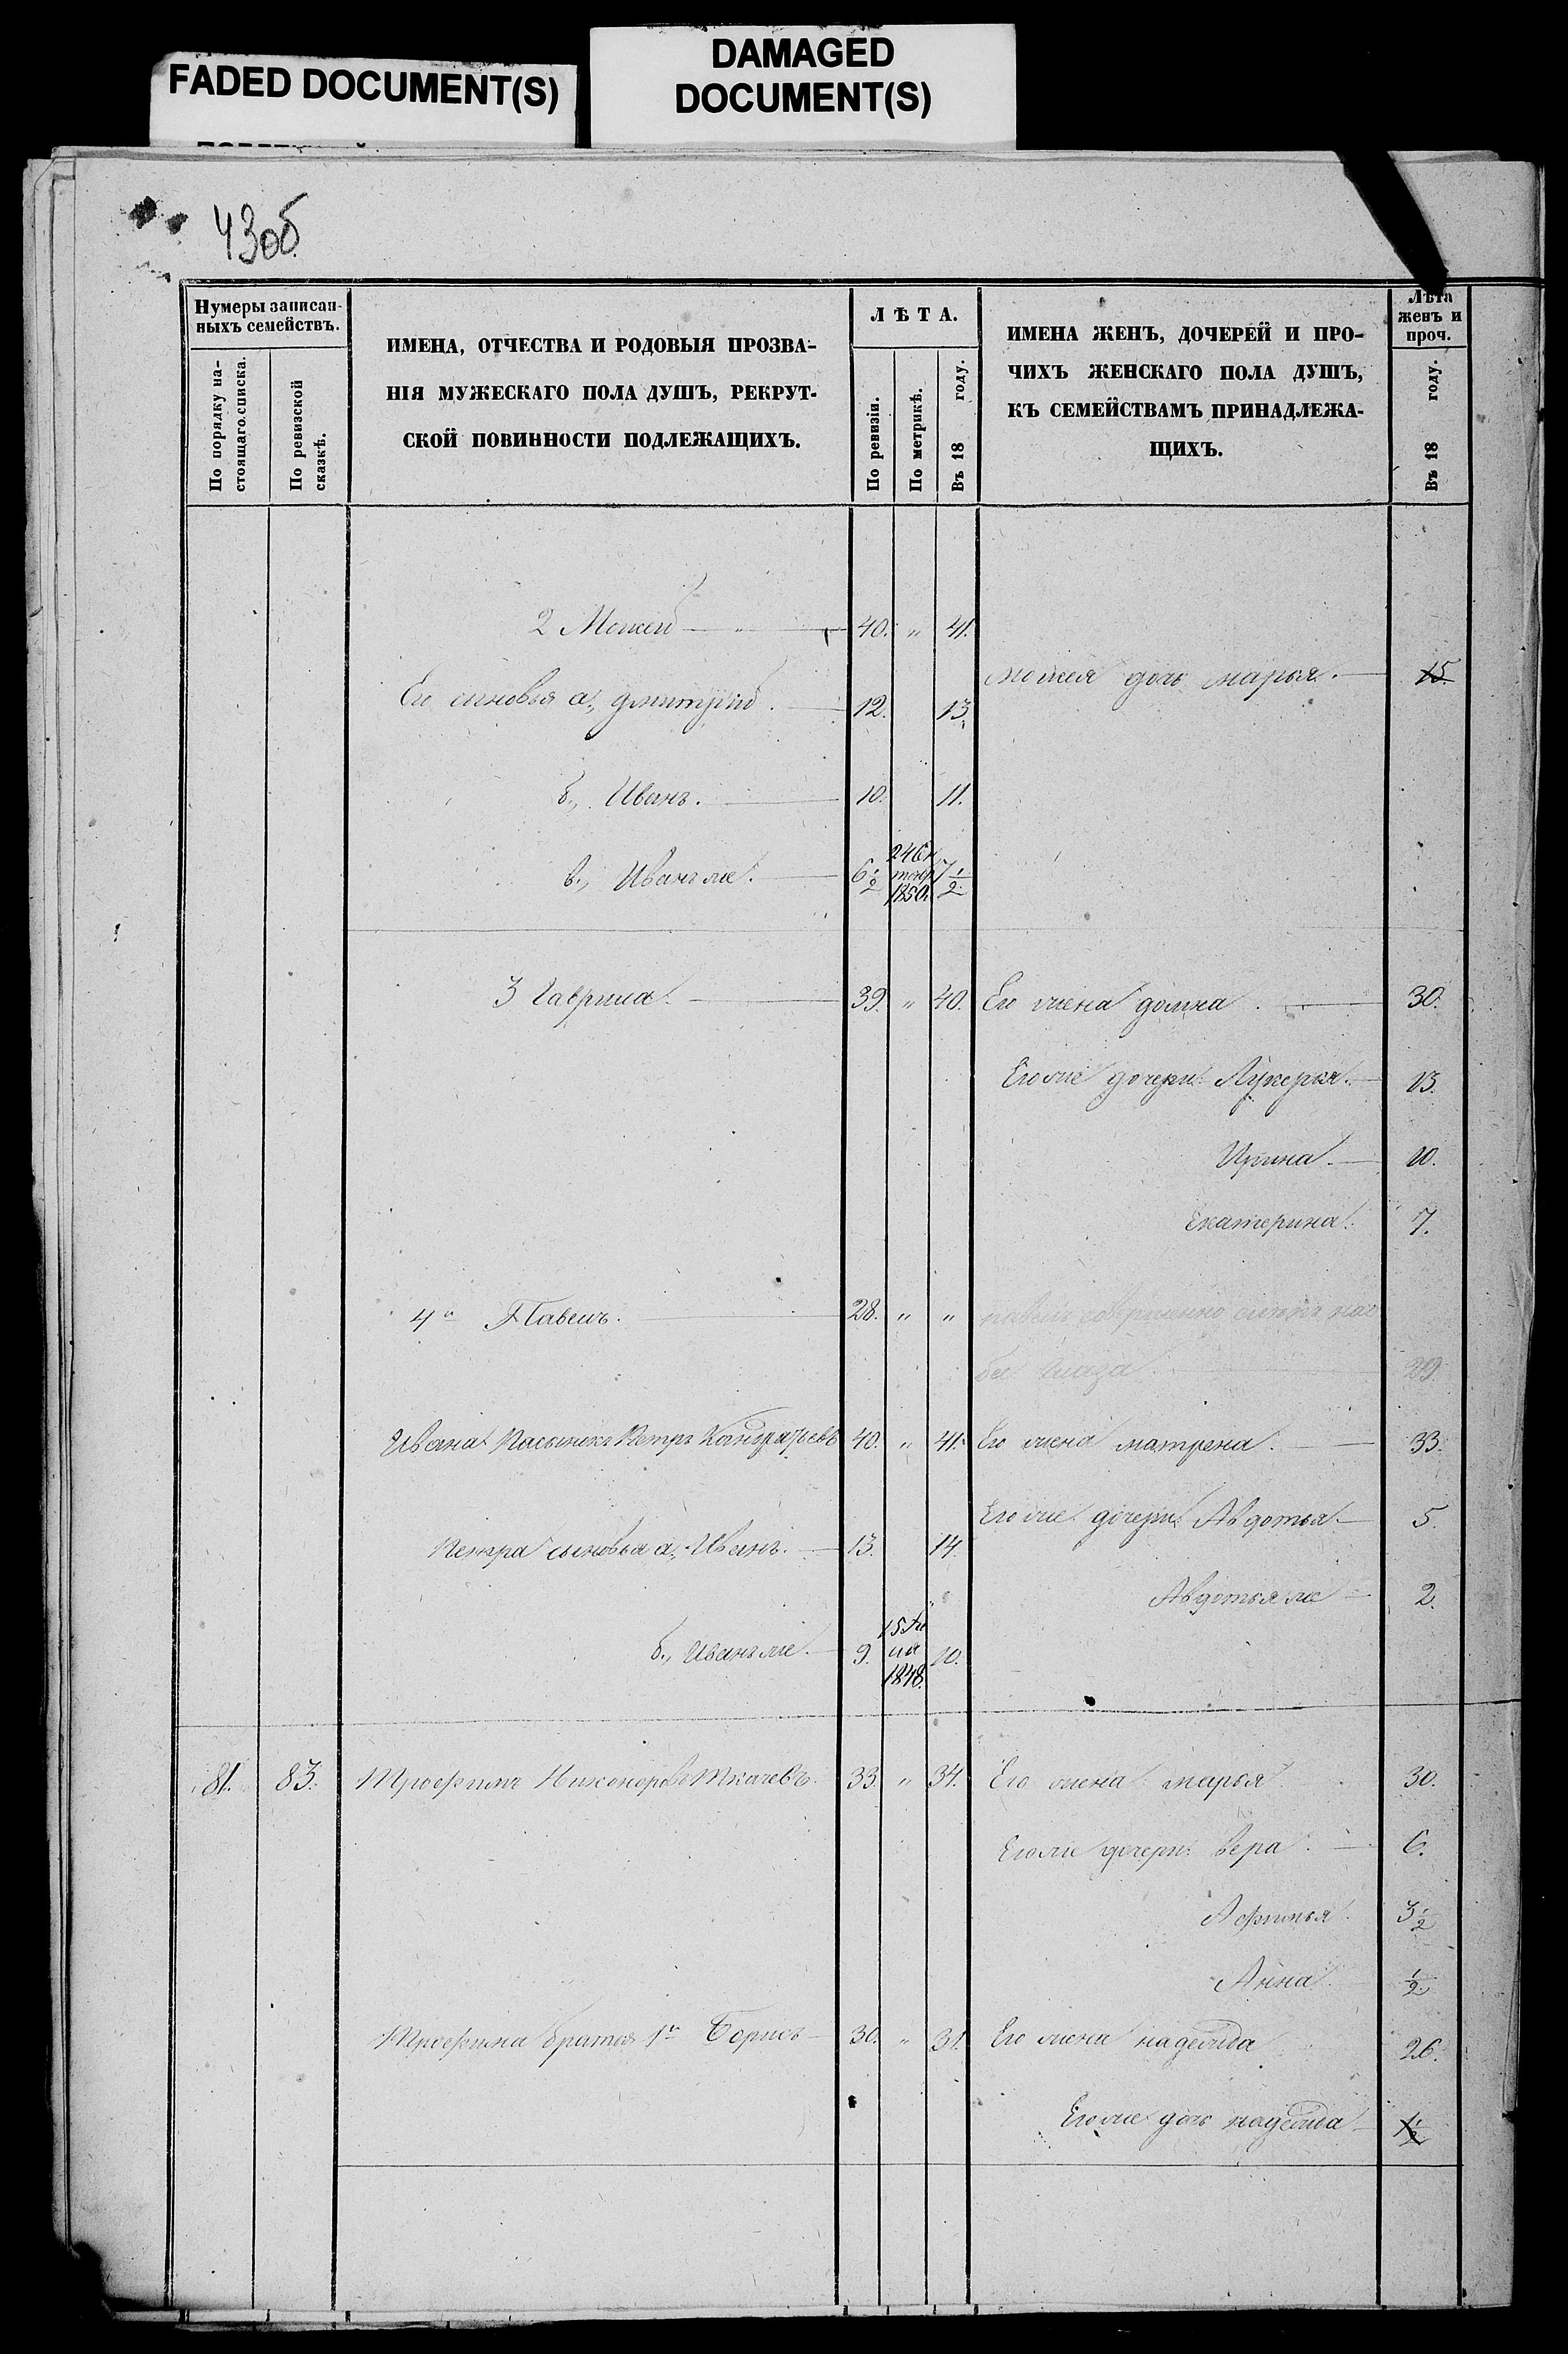 FADED DOCUMENT(S)
DAMAGED
DOCUMENT(S)
43об.
Нумеры записан-
ныхъ семействъ.
По порядку на-
стоящаго списка.
По ревизской
сказкѣ.
ИМЕНА, ОТЧЕСТВА И РОДОВЫЯ ПРОЗВА-
НІЯ МУЖЕСКАГО ПОЛА ДУШЪ, РЕКРУТ-
СКОЙ ПОВИННОСТИ ПОДЛЕЖАЩИХЪ.
ЛѢТА.
По ревизіи.
По метрикѣ.
Въ 18 году.
ИМЕНА ЖЕНЪ, ДОЧЕРЕЙ И ПРО-
ЧИХЪ ЖЕНСКАГО ПОЛА ДУШЪ,
КЪ СЕМЕЙСТВАМЪ ПРИНАДЛЕЖА-
ЩИХЪ.
Лѣта
женъ и
проч.
Въ 18 году.
2 Мокей — " — 40. " 41.
мокея дочь марья. — 15.
Его сыновья а., дмитрій. — 12. 13.
б., Иванъ. — 10. 11.
в., Иванъ же. — 6 1/2 24 Ок
тябр
1850. 7 1/2
3 Гаврила. — 39. " 40. Его жена домна. — 30.
Его же дочери: Лукерья. — 13.
Ирина. — 10.
Екатерина. 7.
4й Павелъ. — 28. " " павелъ совершенно слепъ на о
ба глаза. — 29.
Ивана Пасынокъ Петръ Кондратьевъ 40. " 41. Его жена матрена. — 33.
Его же дочери: Авдотья — 5.
Петра сыновья а., Иванъ. — 13. 14.
Авдотья же — 2.
б., Иванъ же. — 9. 15
1848. 10.
81. 83. Трофимъ Никоноровъ Ткачевъ. 33. " 34. Его жена марья 30.
Его же дочери: вера. — 6.
Афимья. 3 1/2
Анна. 1/2
Трофима братья 1й Борисъ — 30. " 31. Его жена надежда 26.
Его же дочь надежда — 1 1/2